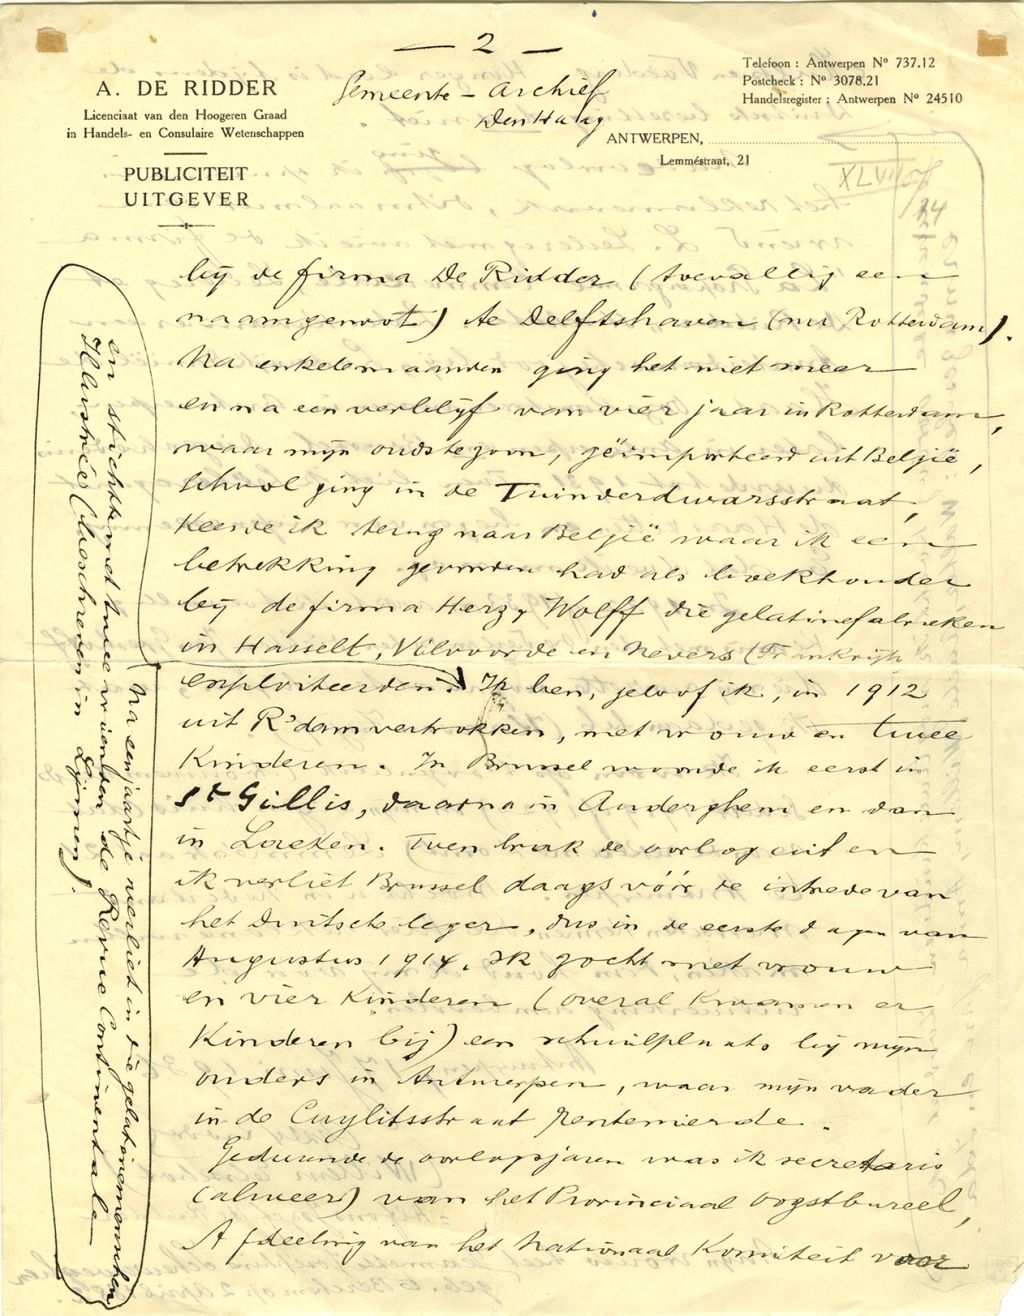 — 2 —
A. DE RIDDER
Licenciaat van den Hoogeren Graad
in Handels- en Consulaire Wetenschappen
PUBLICITEIT
UITGEVER
Gemeente-Archief
Den Haag
Telefoon : Antwerpen Nº 737.12
Postcheck : Nº 3078.21
Handelsregister : Antwerpen Nº 24510
ANTWERPEN,
Lemméstraat, 21
XLVII
14
bij de firma De Ridder (toevallig een
naamgenoot) te Delftshaven (nu Rotterdam).
Na enkele maanden ging het niet meer
en na een verblijf van vier jaar in Rotterdam,
waar mijn oudste zoon, geïmporteerd uit België,
school ging in de Tuinderdwarsstraat,
keerde ik terug naar België waar ik een
betrekking gevonden had als boekhouder
bij de firma Herz, Wolff die gelatinefabrieken
in Hasselt, Vilvoorde en Nevers (Frankrijk
exploiteerden. Ik ben, geloof ik, in 1912
uit R'dam vertrokken, met vrouw en twee
kinderen. In Brussel woonde ik eerst in
St Gillis, daarna in Auderghem en dan
in Laeken. Toen brak de oorlog uit en
ik verliet Brussel daags vóór de intrede van
het Duitsche leger, dus in de eerste dagen van
Augustus 1914. Ik zocht met vrouw
en vier kinderen (overal kwamen er
kinderen bij) een schuilplaats bij mijn
ouders in Antwerpen, waar mijn vader
in de Cuylitsstraat rentenierde.
Gedurende de oorlogsjaren was ik secretaris
(alweer) van het Provinciaal Oogstbureel,
Afdeeling van het Nationaal Komiteit voor
Na een jaartje verliet ik die gelatinemenschen
en stichtte met twee vrienden de Revue Continentale
Illustrée (beschreven in Lijnen).